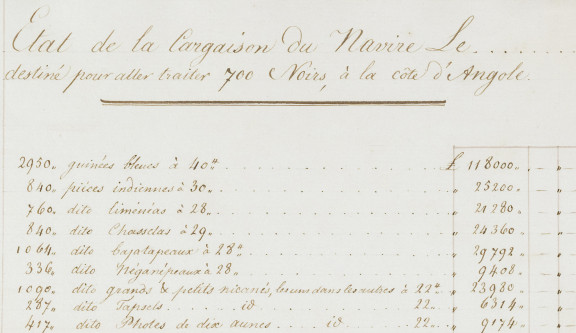 Etat de la Cargaison du Navire Le ........
destiné pour aller traiter 700 Noirs, à la côte d'Angole.
2950,, guinées bleues à 40tt ........ £ 118000,, — ,,
840,, pièces indiennes à 30,, ........ ,, 25200,, — ,,
760,, dito liménéas à 28,, ........ ,, 21280,, — ,,
840,, dito Chasselas à 29,, ........ ,, 24360,, — ,,
1064,, dito bajatapeaux à 28tt ........ ,, 29792,, — ,,
336,, dito Néganépeaux à 28,, ........ ,, 9408,, — ,,
1090,, dito grands & petits nicanés, l'un dans les autres à 22tt ,, 23980,, — ,,
287,, dito Tapsels ..... id ..... 22,, ... ,, 6314,, — ,,
417,, dito Photes de dix aunes .... id .... 22,, ... ,, 9174,, — ,,